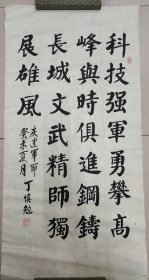 科技强軍勇攀高
峰與時俱進鋼鑄
長城文武精師獨
展雄風
庆建軍節
癸未夏月 丁侯勉